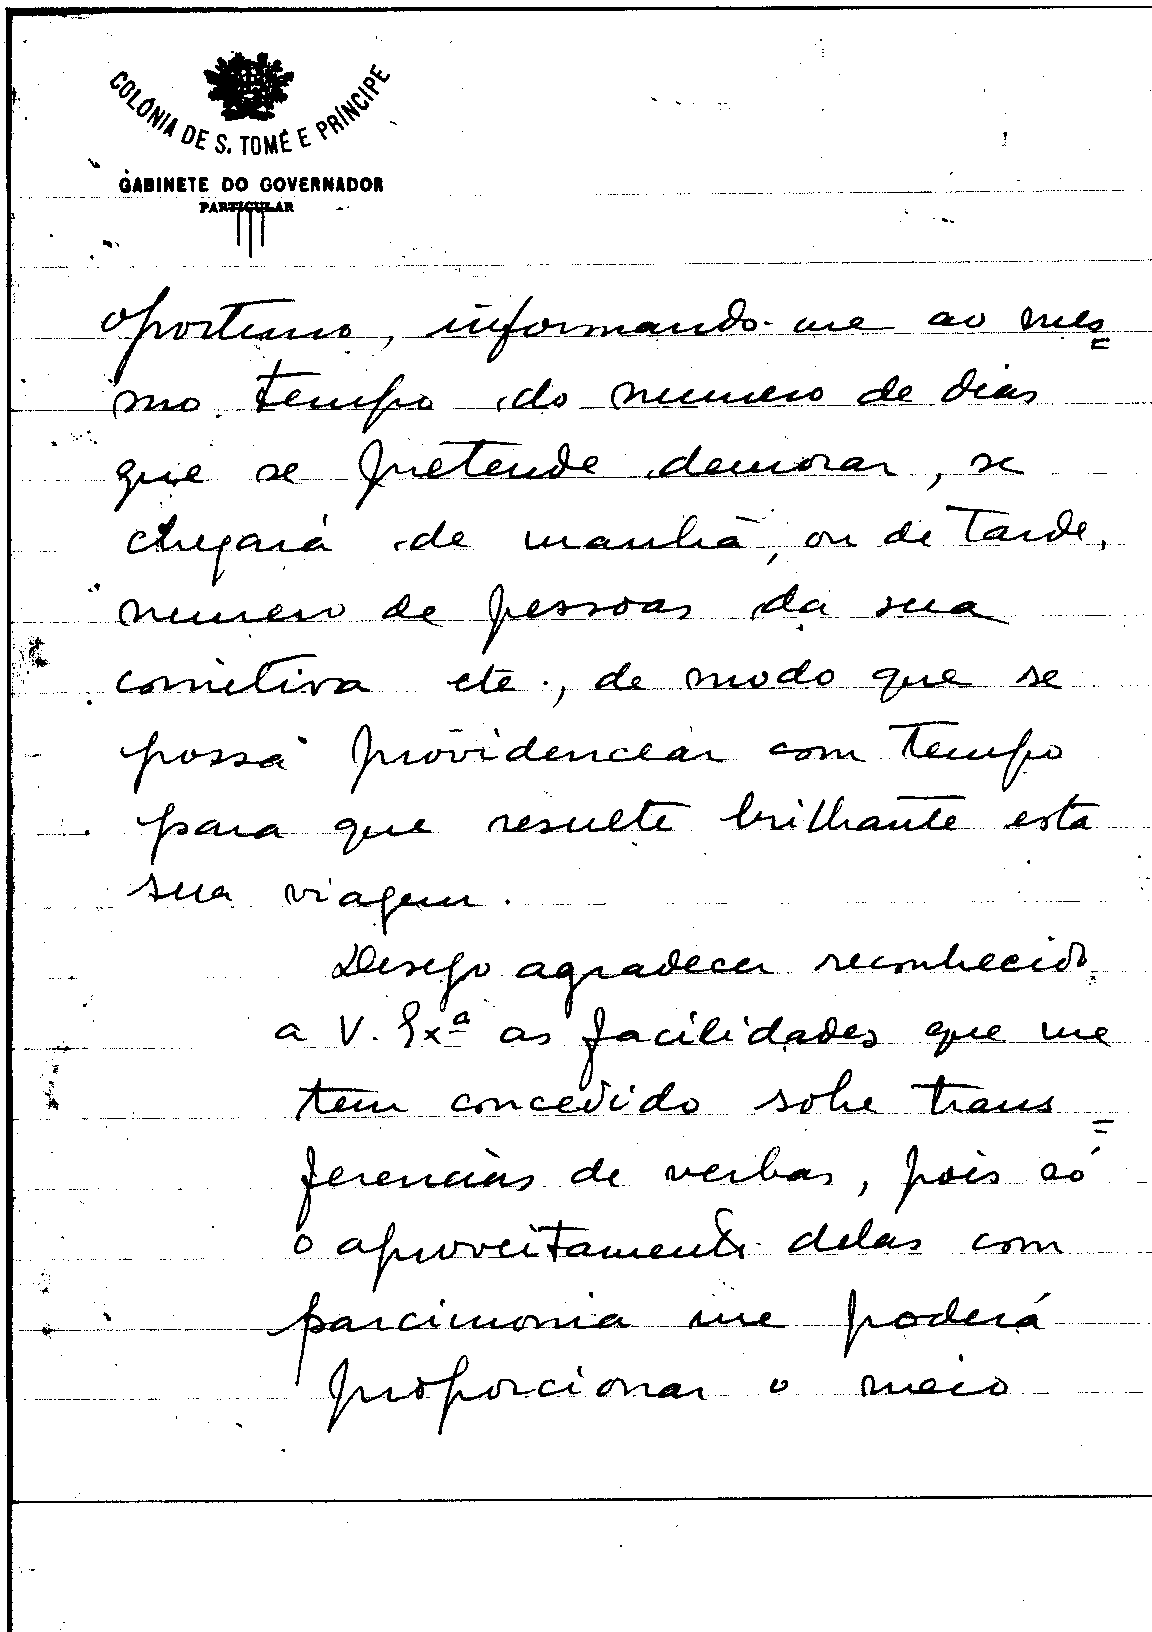 COLÓNIA DE S. TOMÉ E PRÍNCIPE
GABINETE DO GOVERNADOR
PARTICULAR
oportuno, informando-me ao mes=
mo tempo do numero de dias
que se pretende demorar, se
chegará de manhã, ou de tarde,
numero de pessoas da sua
comitiva etc., de modo que se
possa providencear com tempo
para que resulte brilhante esta
sua viagem.
Desejo agradecer reconhecido
a V. Exª as facilidades que me
tem concedido sobre trans=
ferencias de verbas, pois só
o aproveitamento delas com
parcimonia me poderá
proporcionar o meio